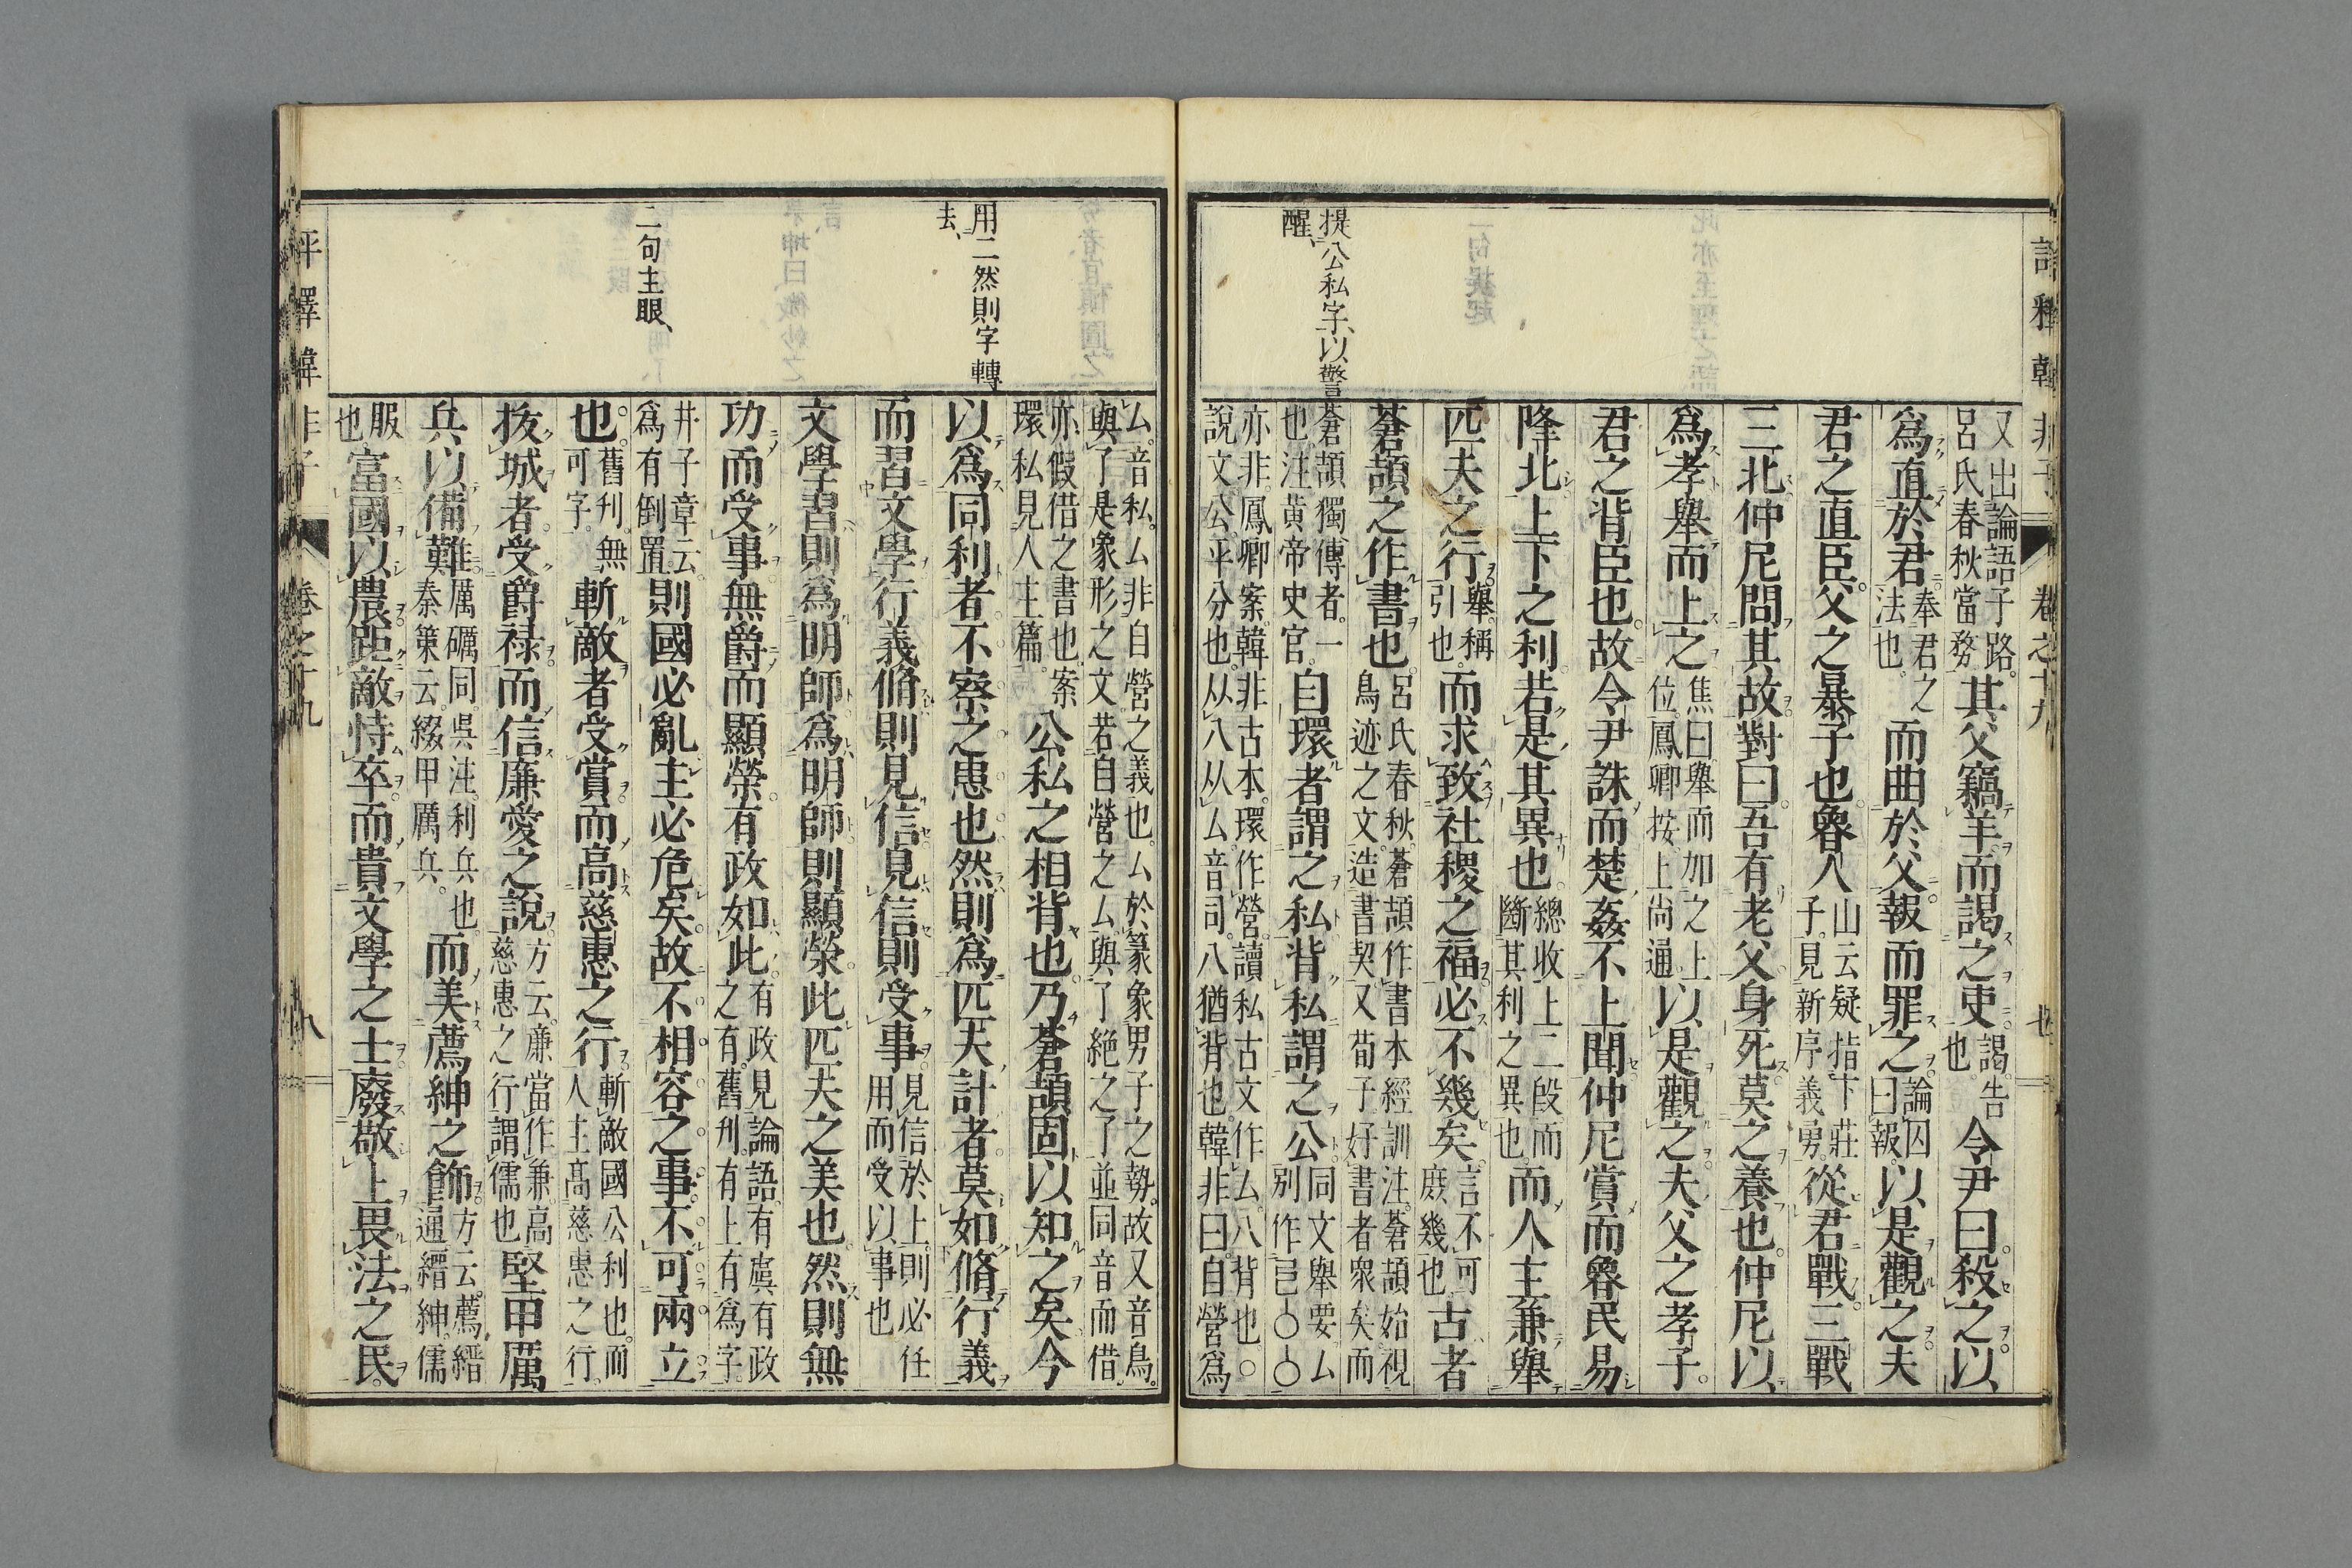 提公私字、以警
醒、
又出論語子路。呂氏春秋當務其父竊羊而謁之吏謁。告也。令尹曰殺之以
爲直於君奉君之法也。而曲於父報而罪之論囚曰報。以是觀之夫
君之直臣。父之暴子也。魯人山云疑指卞莊子。見新序義勇。從君戰三戰
三北仲尼問其故對曰吾有老父身死莫之養也仲尼以
爲孝舉而上之焦曰舉而加之上位。鳳卿按上尚通。以是觀之夫父之孝子。
君之背臣也。故令尹誅而楚姦不上聞仲尼賞而魯民易
降北上下之利若是其異也。總收上二段而斷其利之異也。而人主兼舉
匹夫之行舉。稱引也。而求致社稷之福必不幾矣。言不可庶幾也。古者
蒼頡之作書也。呂氏春秋。蒼頡作書本經訓注。蒼頡始視鳥迹之文。造書契又荀子好書者衆矣。而
蒼頡獨傳者。一也注黄帝史官。自環者謂之私背私謂之公。同文舉要。厶別作㠯〇〇
亦非。鳳卿案。韓非古本。環作營。讀私古文作厶。八背也。〇
說文公。平分也。从八从厶。厶音司。八猶背也。韓非曰。自營爲
用二然則字轉
去、
二句主眼、
厶。音私。厶非自營之義也。厶於篆象男子之勢。故又音鳥。
與了是象形之文。若自營之厶與了絕之了並同音而借
亦假借之書也。案環私見人主篇。公私之相背也。乃蒼頡固以知之矣今
以爲同利者。不察之患也然則爲匹夫計者。莫如脩行義
而習文學行義脩則見信見信則受事。見信於上。則必任用而受以事也
文學習則爲明師爲明師則顯榮。此匹夫之美也。然則無
功而受事無爵而顯榮。有政如此有政見論語。有虞有政之有。舊刋。有上有爲字。
井子章云。爲有倒置。則國必亂主必危矣。故不相容之事。不可兩立
也。舊刋。無可字。斬敵者受賞而高慈惠之行斬敵國公利也。而人主高慈惠之行。
拔城者。受爵祿而信廉愛之說。方云。廉當作兼高慈惠之行。謂儒也堅甲厲
兵以備難。厲礪同。吳注利兵也。秦策云。綴甲厲兵。而美薦紳之飾。方云。薦縉通縉紳。儒
服也。富國以農。距敵恃卒而貴文學之士廢敬上畏法之民
評釋韓非子
卷之十九
八